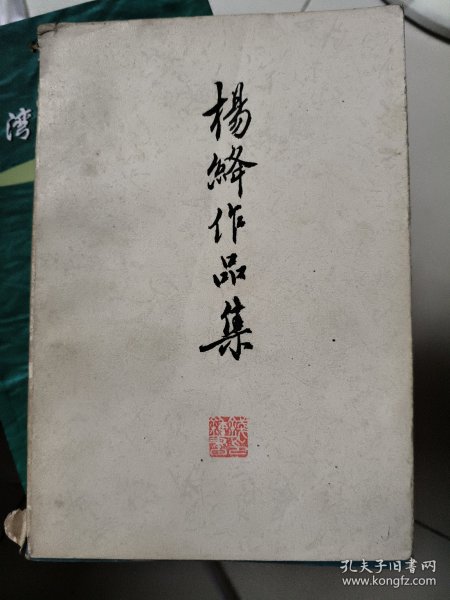 楊絳作品集
湾
孔夫子旧书网
www.kongfz.com